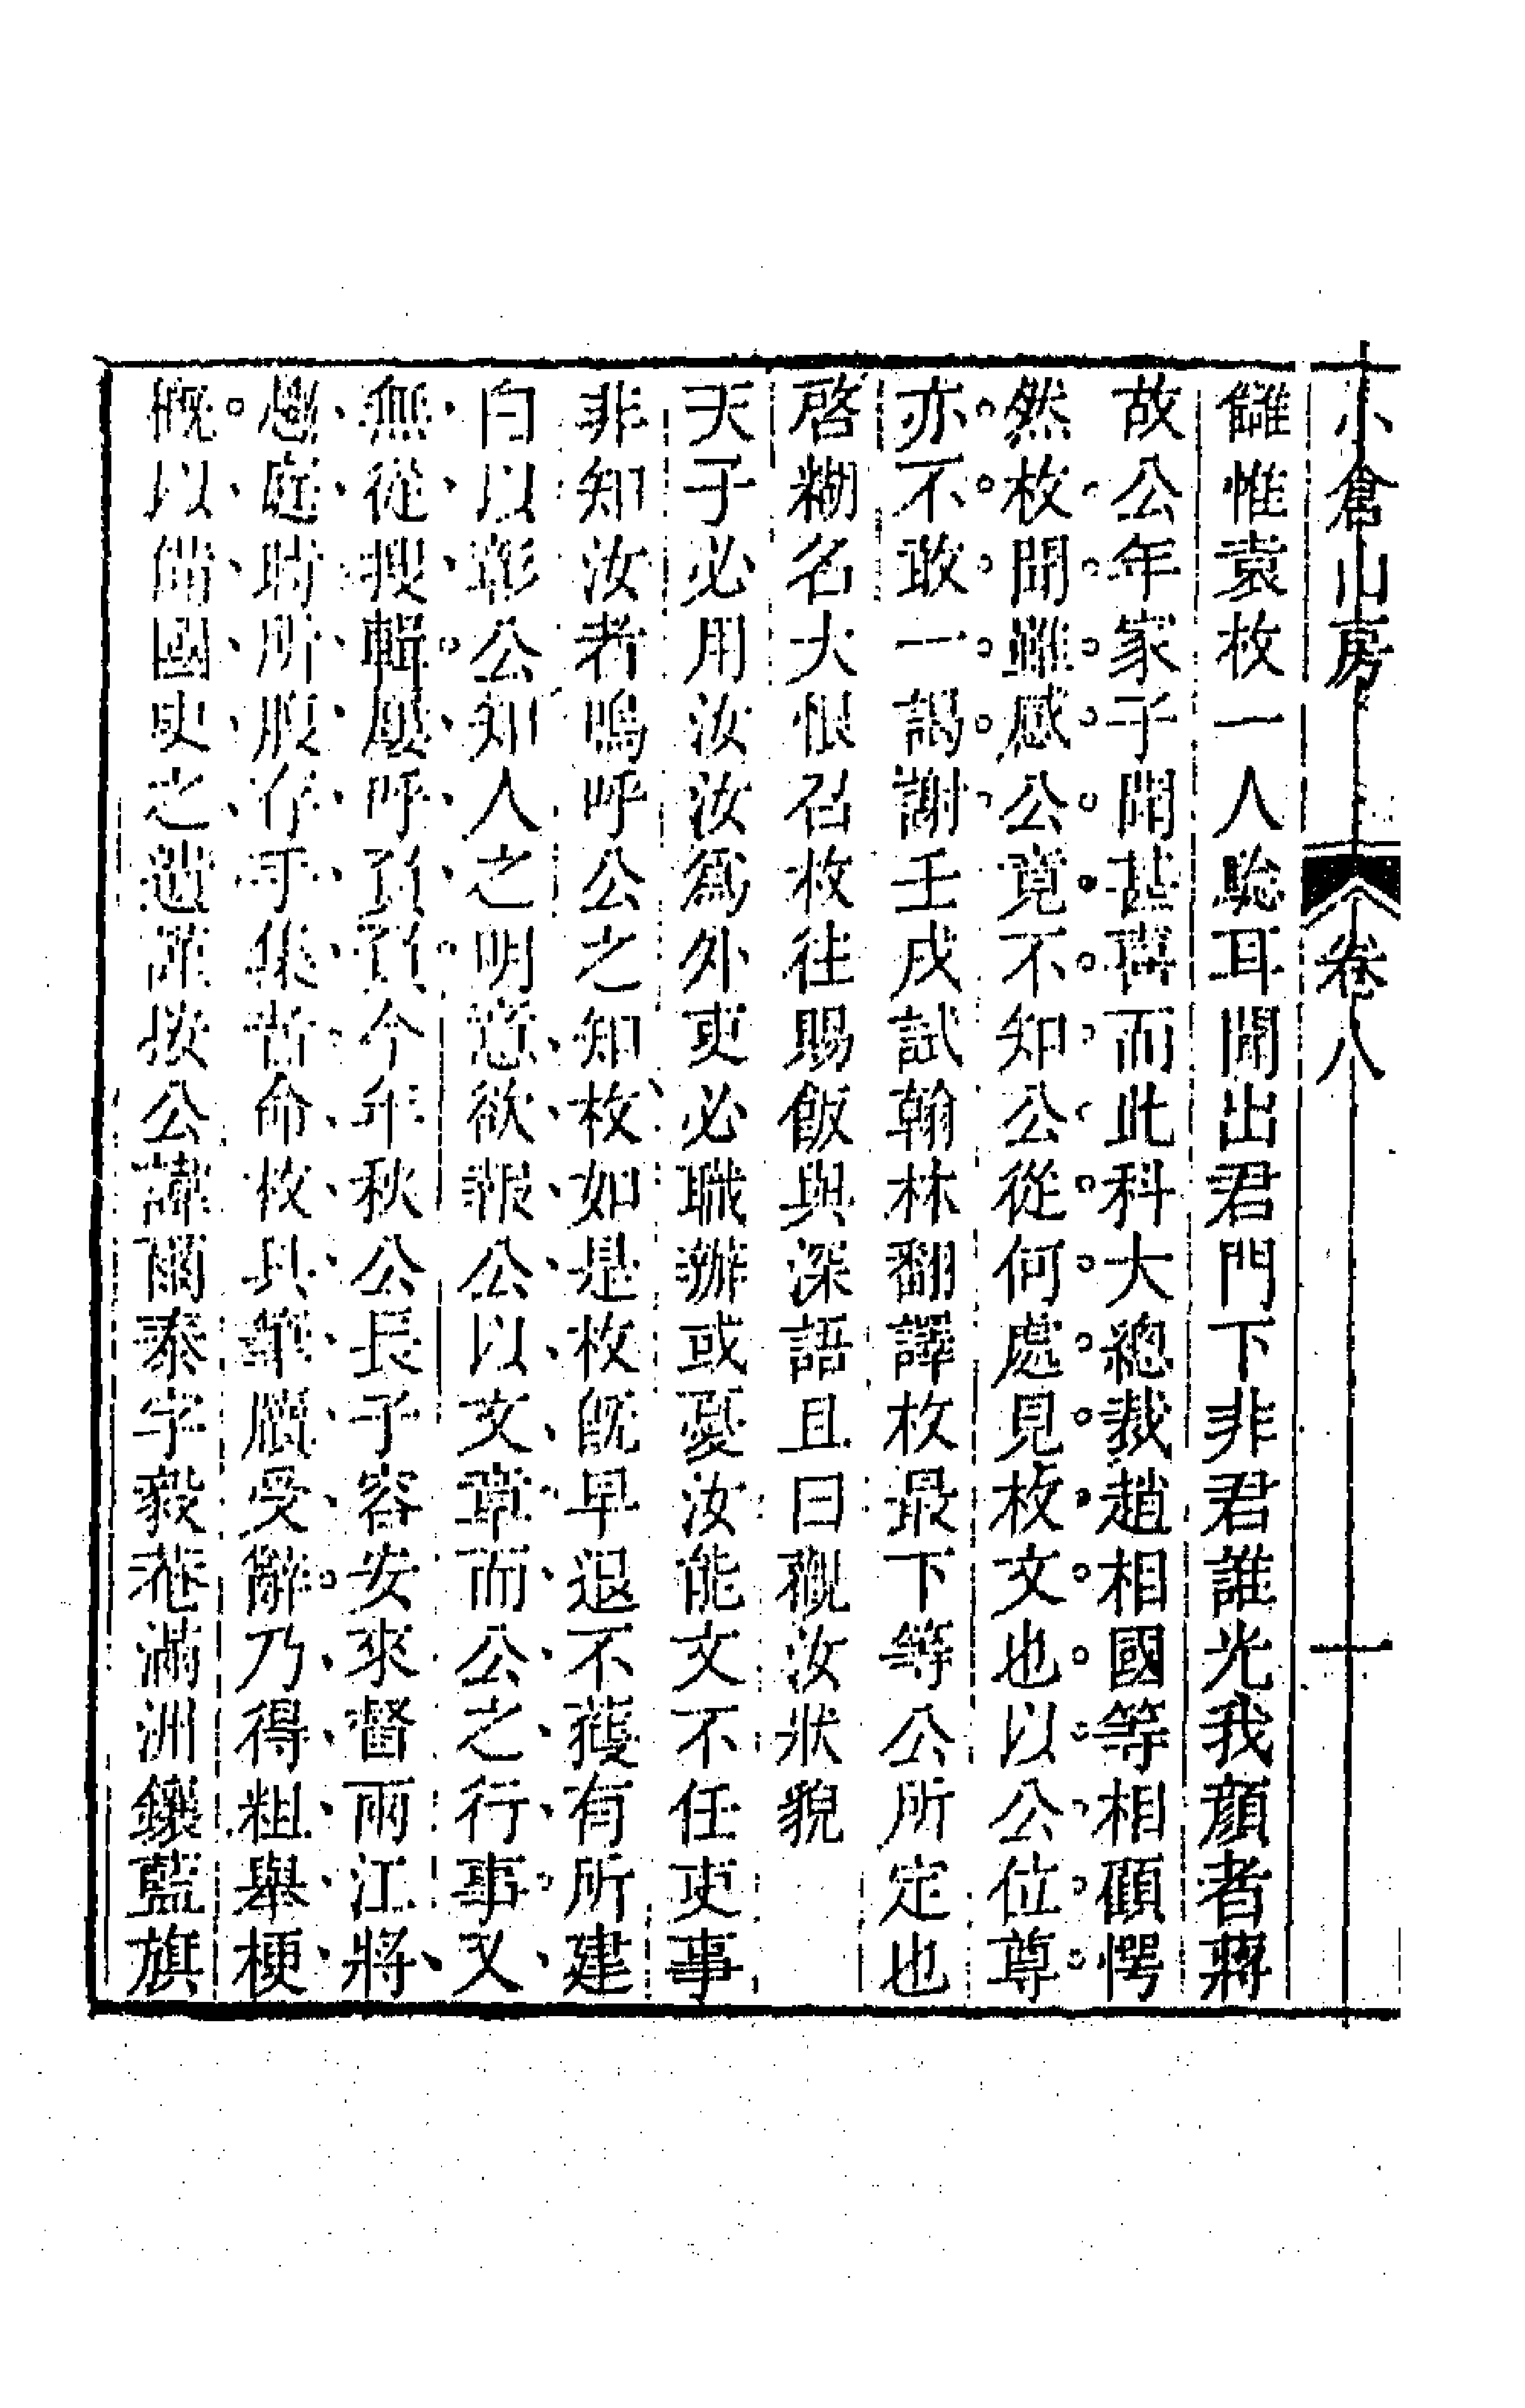 小倉山房 卷八 十
讎惟袁枚一人耳聞出君門下非君誰光我顏者蔣
故公年家子聞甚喜而此科大總裁趙相國等相顧愕
然枚聞雖感公竟不知公從何處見枚文也以公位尊
亦不敢一謁謝壬戌試翰林翻譯枚最下等公所定也
啓糊名大恨召枚往賜飯與深語且曰觀汝狀貌
天子必用汝汝爲外吏必職辦或憂汝能文不任吏事
非知汝者嗚呼公之知枚如是枚旣早退不獲有所建
白以彰公知人之明意欲報公以文章而公之行事又
無從搜輯屢呼負負今年秋公長子容安來督兩江將
趨庭時所服存于集者命枚具筆牘受辭乃得粗舉梗
概以備國史之遺謹按公諱爾泰字毅菴滿洲鑲藍旗